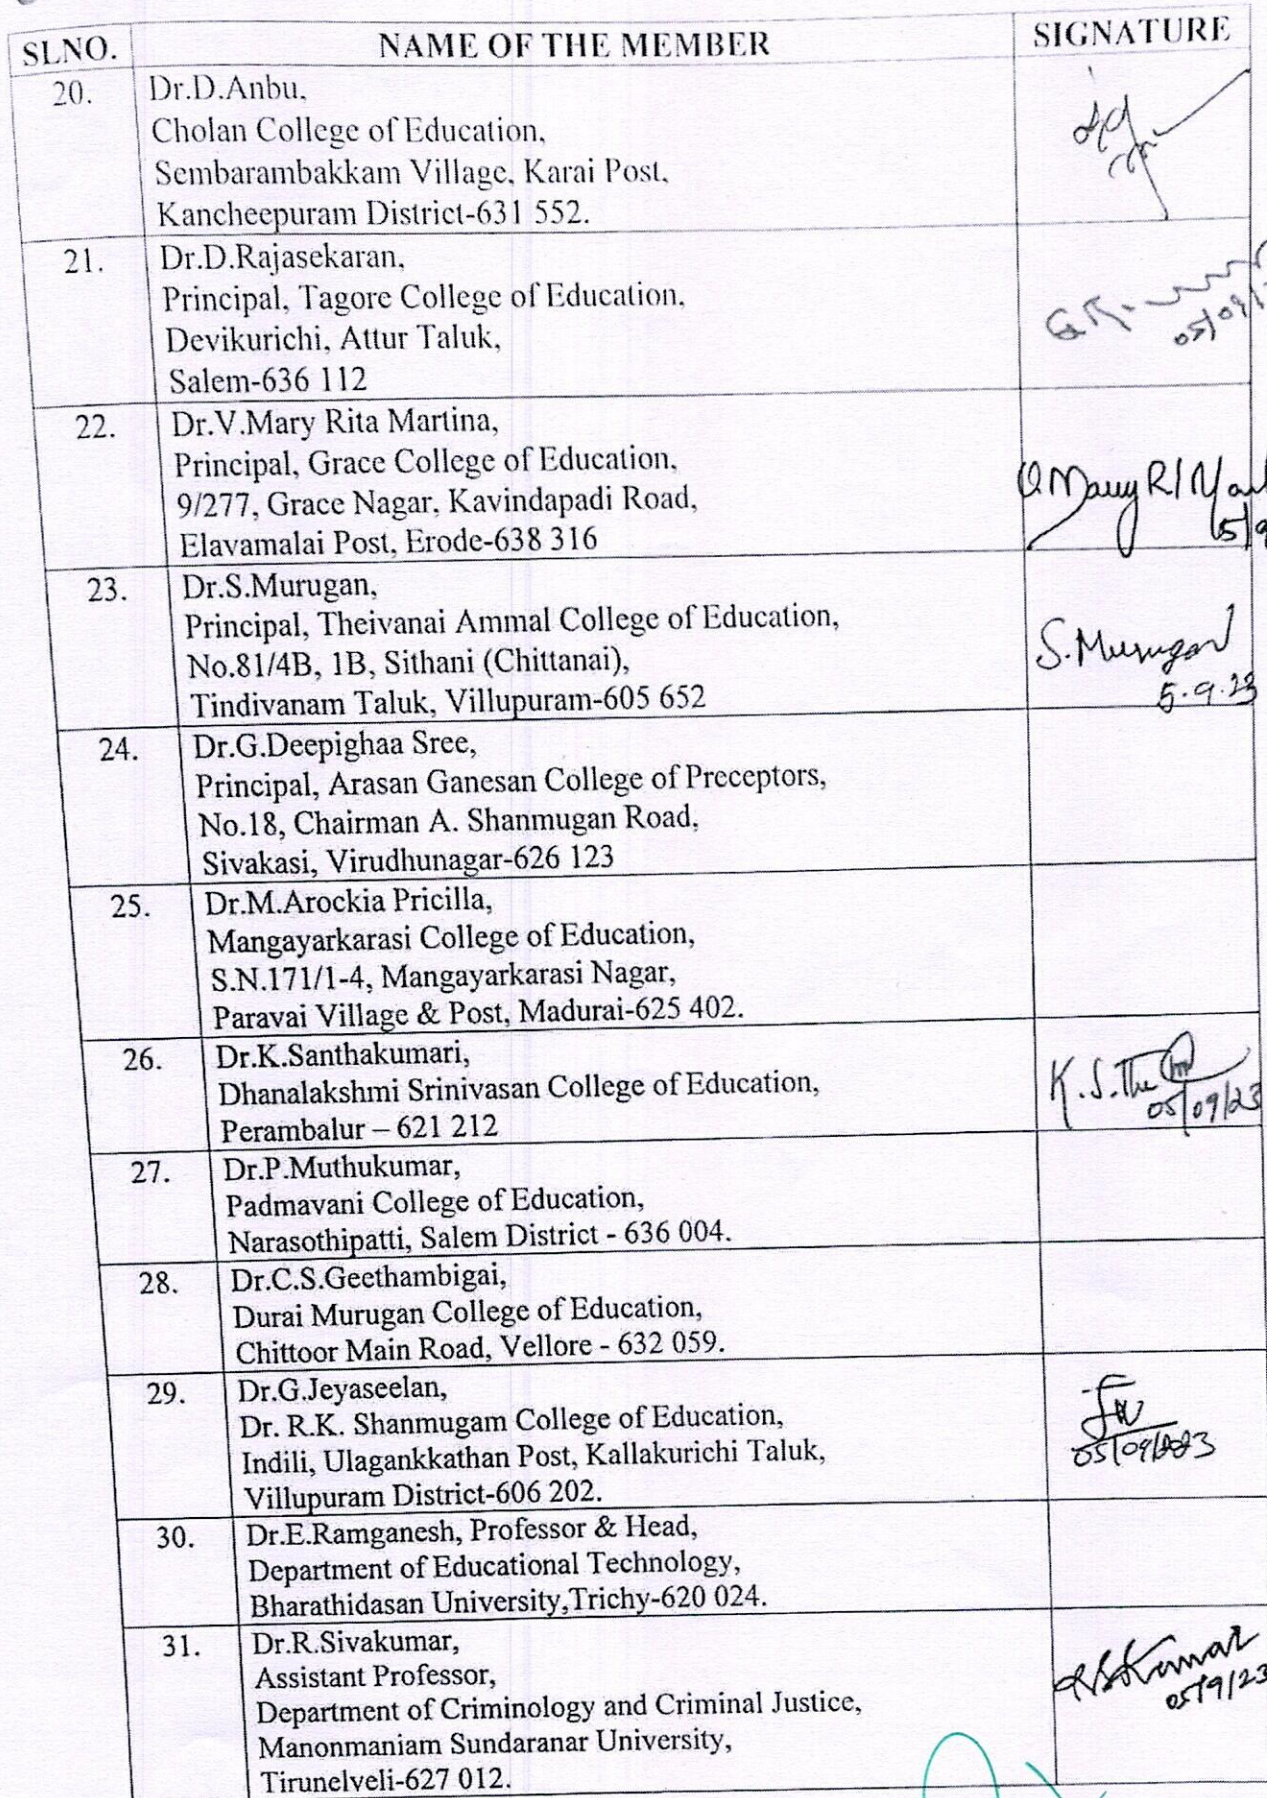 SLNO. NAME OF THE MEMBER SIGNATURE
20. Dr.D.Anbu,
Cholan College of Education,
Sembarambakkam Village, Karai Post,
Kancheepuram District-631 552.
21. Dr.D.Rajasekaran,
Principal, Tagore College of Education,
Devikurichi, Attur Taluk,
Salem-636 112
05/09/
22. Dr.V.Mary Rita Martina,
Principal, Grace College of Education,
9/277, Grace Nagar, Kavindapadi Road,
Elavamalai Post, Erode-638 316
23. Dr.S.Murugan,
Principal, Theivanai Ammal College of Education,
No.81/4B, 1B, Sithani (Chittanai),
Tindivanam Taluk, Villupuram-605 652
S.Murugan
5.9.23
24. Dr.G.Deepighaa Sree,
Principal, Arasan Ganesan College of Preceptors,
No.18, Chairman A. Shanmugan Road,
Sivakasi, Virudhunagar-626 123
25. Dr.M.Arockia Pricilla,
Mangayarkarasi College of Education,
S.N.171/1-4, Mangayarkarasi Nagar,
Paravai Village & Post, Madurai-625 402.
26. Dr.K.Santhakumari,
Dhanalakshmi Srinivasan College of Education,
Perambalur – 621 212
05/09/23
27. Dr.P.Muthukumar,
Padmavani College of Education,
Narasothipatti, Salem District - 636 004.
28. Dr.C.S.Geethambigai,
Durai Murugan College of Education,
Chittoor Main Road, Vellore - 632 059.
29. Dr.G.Jeyaseelan,
Dr. R.K. Shanmugam College of Education,
Indili, Ulagankkathan Post, Kallakurichi Taluk,
Villupuram District-606 202.
05/09/2023
30. Dr.E.Ramganesh, Professor & Head,
Department of Educational Technology,
Bharathidasan University,Trichy-620 024.
31. Dr.R.Sivakumar,
Assistant Professor,
Department of Criminology and Criminal Justice,
Manonmaniam Sundaranar University,
Tirunelveli-627 012.
05/9/23